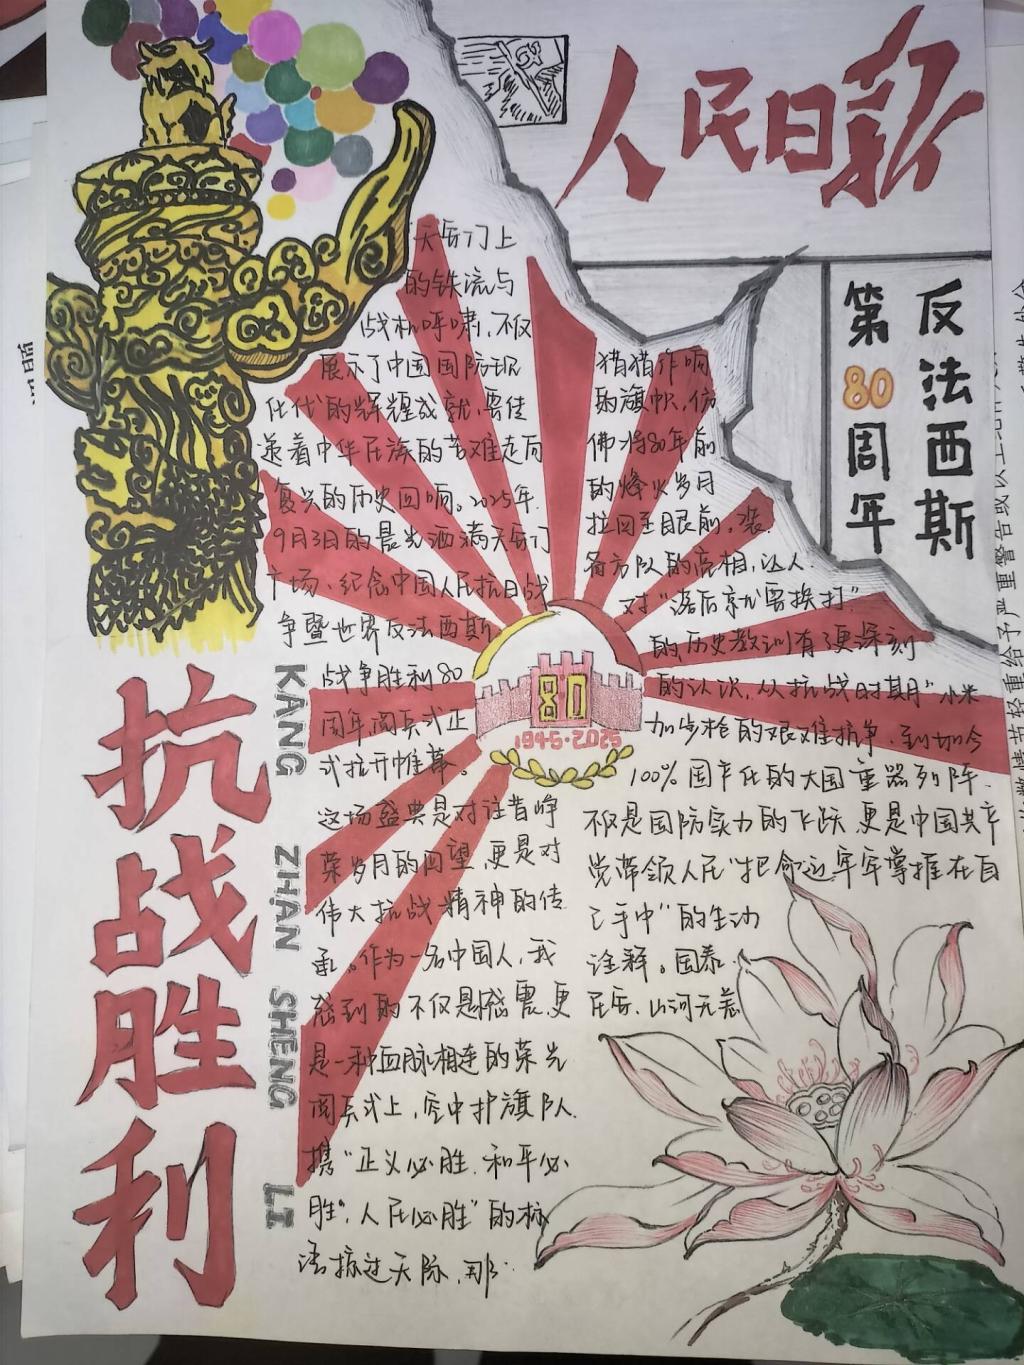 人民日报
反法西斯
第80周年
抗战胜利
KANG ZHAN SHENG LI
天安门上
的铁流与
战机呼啸，不仅
展示了中国国防现
代化的辉煌成就，更传
递着中华民族的苦难走向
复兴的历史回响。2025年
9月3日的晨光洒满天安门
广场，纪念中国人民抗日战
争暨世界反法西斯
战争胜利80
周年阅兵式正
式拉开帷幕。
这场盛典是对往昔峥
荣岁月的回望，更是对
伟大抗战精神的传
承。作为一名中国人，我
感到的不仅是震，更
是一种血脉相连的荣光
阅兵式上，空中护旗队
携“正义必胜，和平必
胜”，人民必胜”的标
语掠过天际，那
猎猎作响
的旗帜，仿
佛将80年前
的烽火岁月
拉回至眼前，装
备方队的亮相，让人
对“落后就要挨打”
的历史教训有了更深刻
的认识，从抗战时期“小米
加步枪的艰难抗争，到如今
100%国产化的大国重器列阵，
不仅是国防实力的飞跃，更是中国共产
党带领人民“把命运牢牢掌握在自
己手中”的生动
诠释。国泰
民安，山河无恙
80
1945·2025